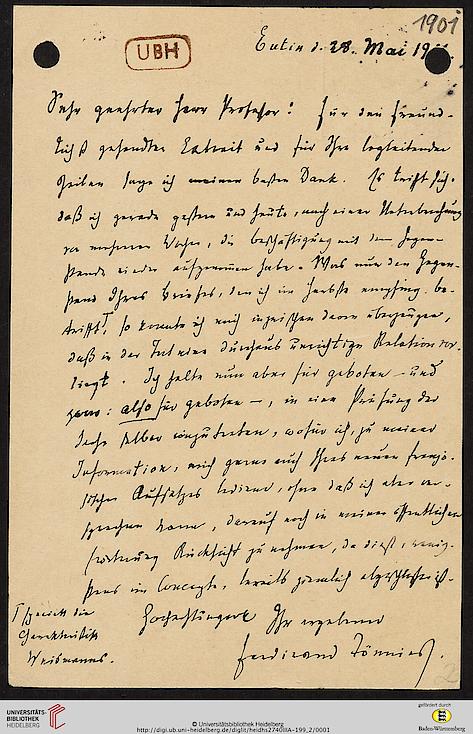 1901
UBH
Eutin d. 28. Mai 19
Sehr geehrter Herr Professor! Für den freund-
lichst gesandten Extrait und für Ihre begleitenden
Zeilen sage ich meinen besten Dank. Es trifft sich,
daß ich gerade gestern und heute, nach einer Unterbrechung
von mehreren Wochen, die Beschäftigung mit dem Gegen-
stande wieder aufgenommen habe. Was nun den Gegen-
stand Ihres Briefes, den ich im Herbste empfing, be-
trifft, so konnte ich mich inzwischen davon überzeugen,
daß in der Tat eine durchaus unrichtige Relation vor-
liegt. Ich halte nun aber für geboten – und
zwar: also für geboten –, in eine Prüfung der
Sache selber einzutreten, wofür ich, zu meiner
Information, mich gerne auch Ihres neuen franzö-
sischen Aufsatzes bediene, ohne daß ich aber ver-
sprechen kann, darauf noch in meiner öffentlichen
Rücksicht zu nehmen, da diese, wenig-
stens im Concepte, bereits ziemlich abgeschlossen ist.
Hochachtungsvoll Ihr ergebener
Ferdinand Tönnies.
betrifft die
Charakteristik
Weismanns.
2
UNIVERSITÄTS-
BIBLIOTHEK
HEIDELBERG
© Universitätsbibliothek Heidelberg
http://digi.ub.uni-heidelberg.de/diglit/heidhs2740IIIA-199_2/0001
gefördert durch
Baden-Württemberg